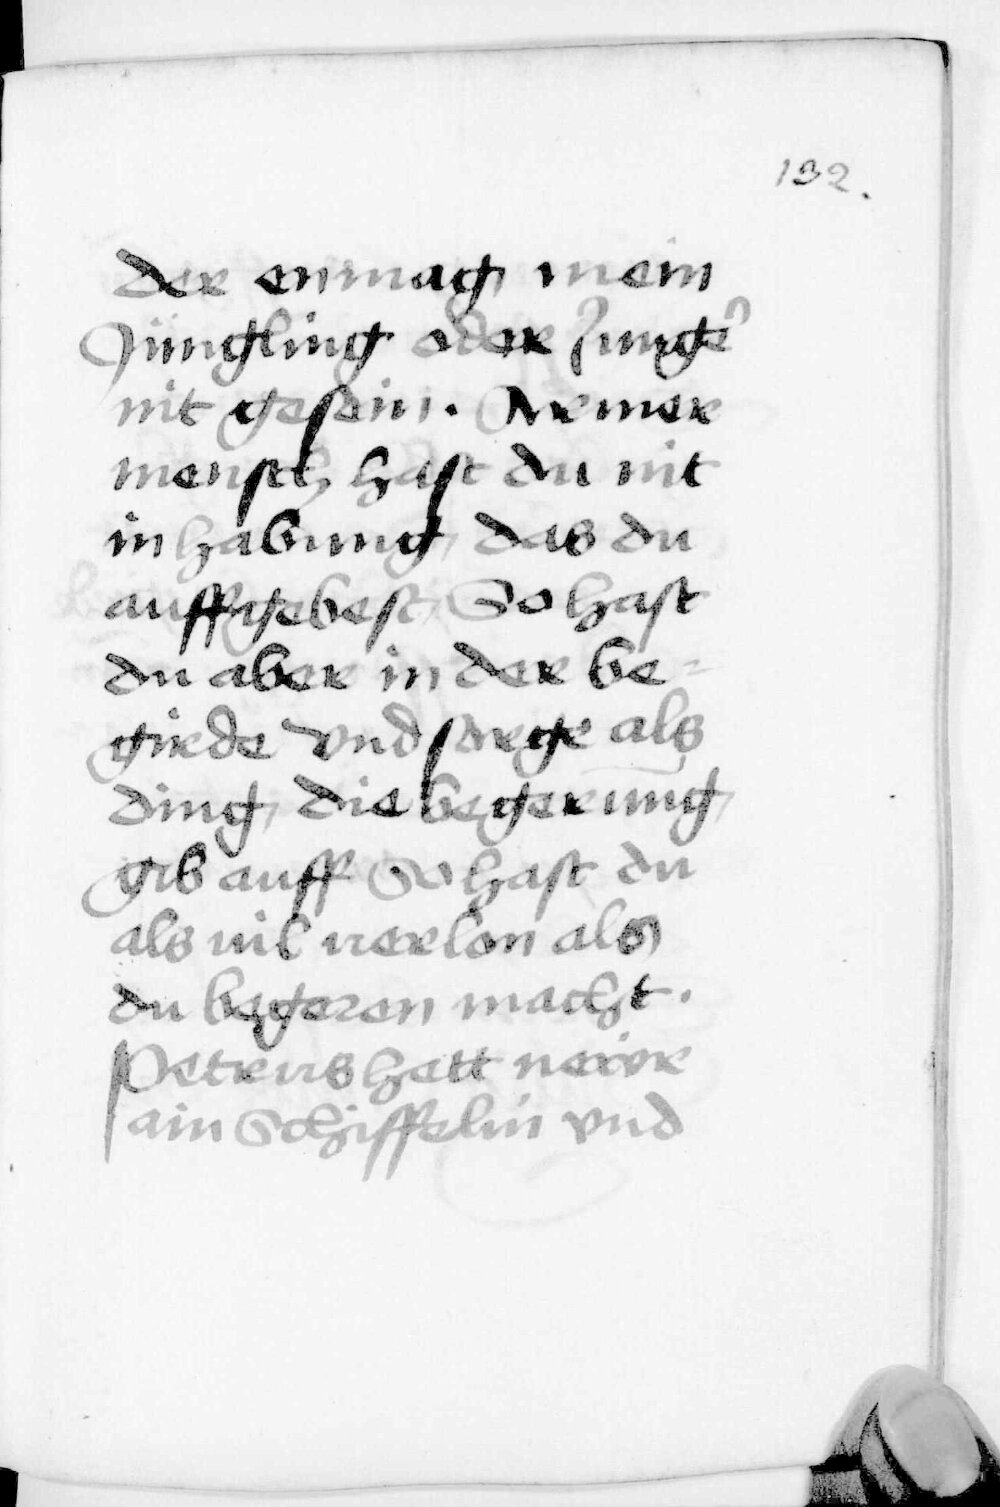 132.
der enmag mein
Jüngling oder Junger
nit gesein. Armer
mensch hast du nit
in habung das du
auffgebest So hast
du aber in der be=
girde vnd sorge als
ding die begerung
gib auff So hast du
als uil uerlon als
du begeren macht.
Petrus hett newr
ain Schiffelin vnd